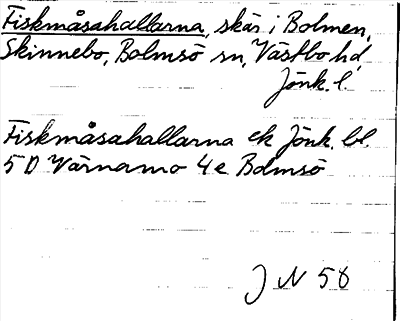 Fiskmåsahallarna, skär i Bolmen,
Skinnebo, Bolmsö sn, Västbo hd,
Jönk. l.
Fiskmåsahallarna ek Jönk. bl.
5 D Värnamo 4e Bolmsö
J N 58